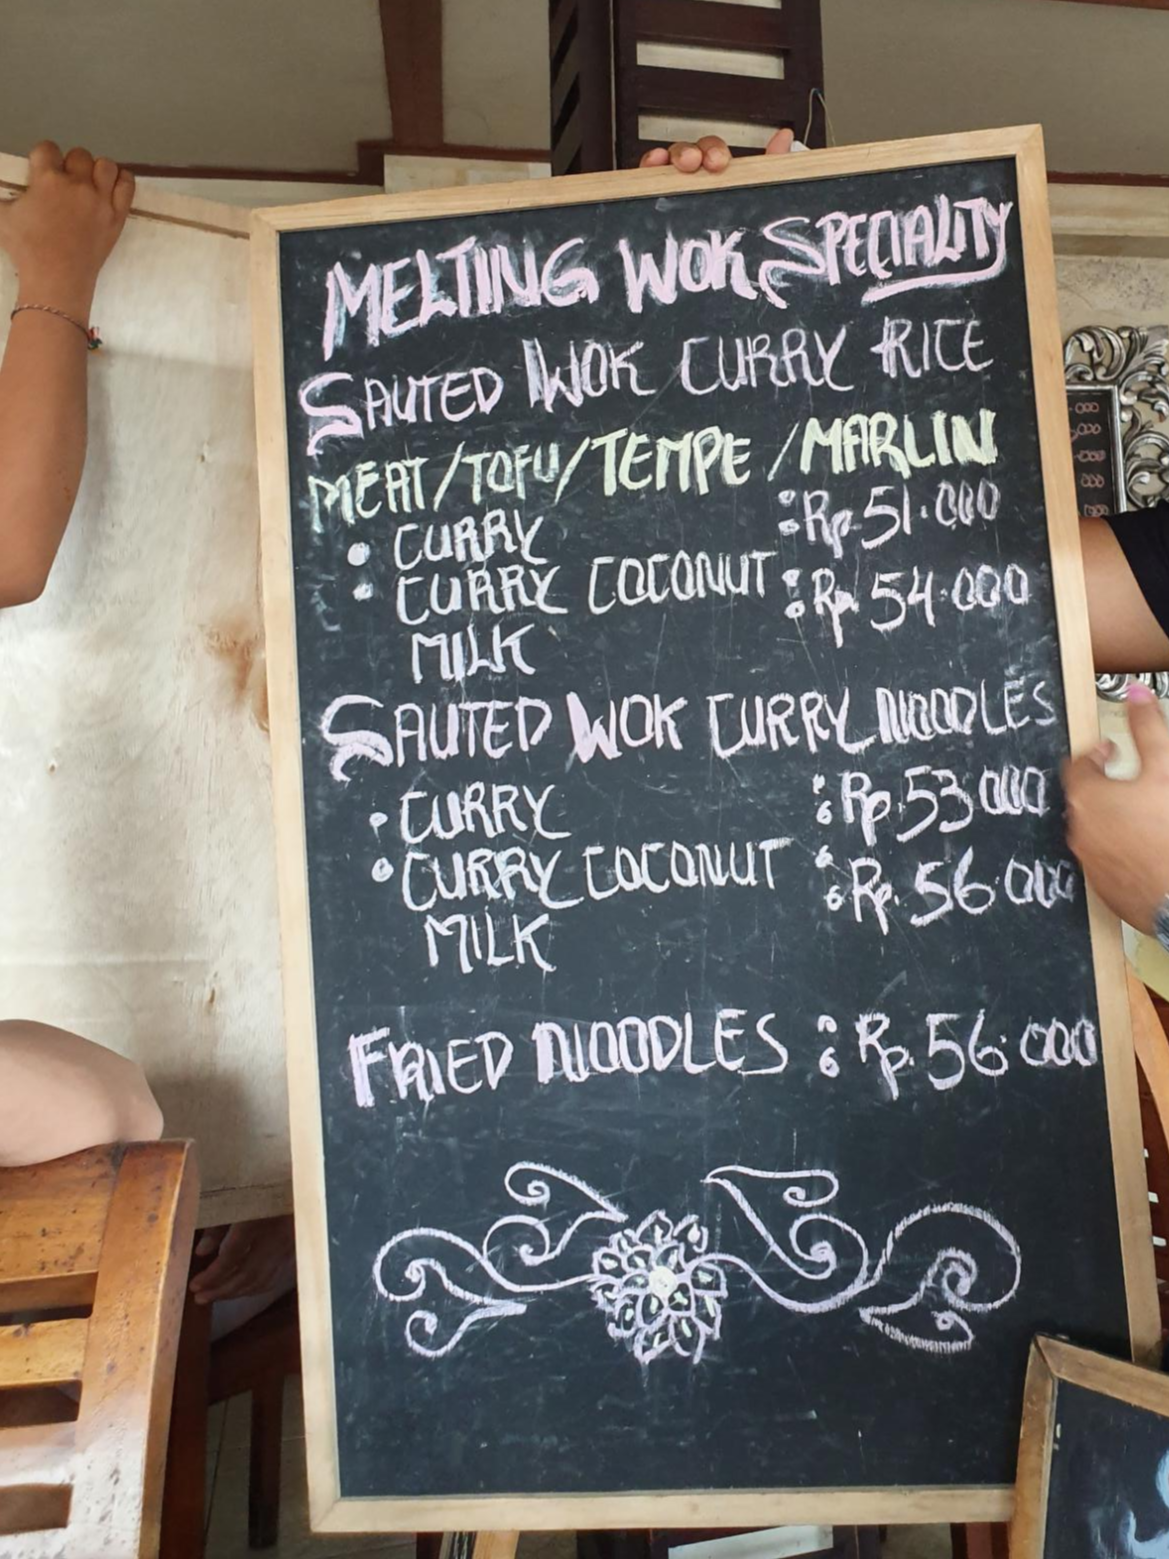 MELTING WOK SPECIALITY
SAUTED WOK CURRY RICE
MEAT/TOFU/TEMPE/MARLIN
• CURRY : Rp. 51.000
• CURRY COCONUT : Rp. 54.000
MILK
SAUTED WOK CURRY NOODLES
• CURRY : Rp. 53 000
• CURRY COCONUT : Rp. 56.000
MILK
FRIED NOODLES : Rp. 56.000